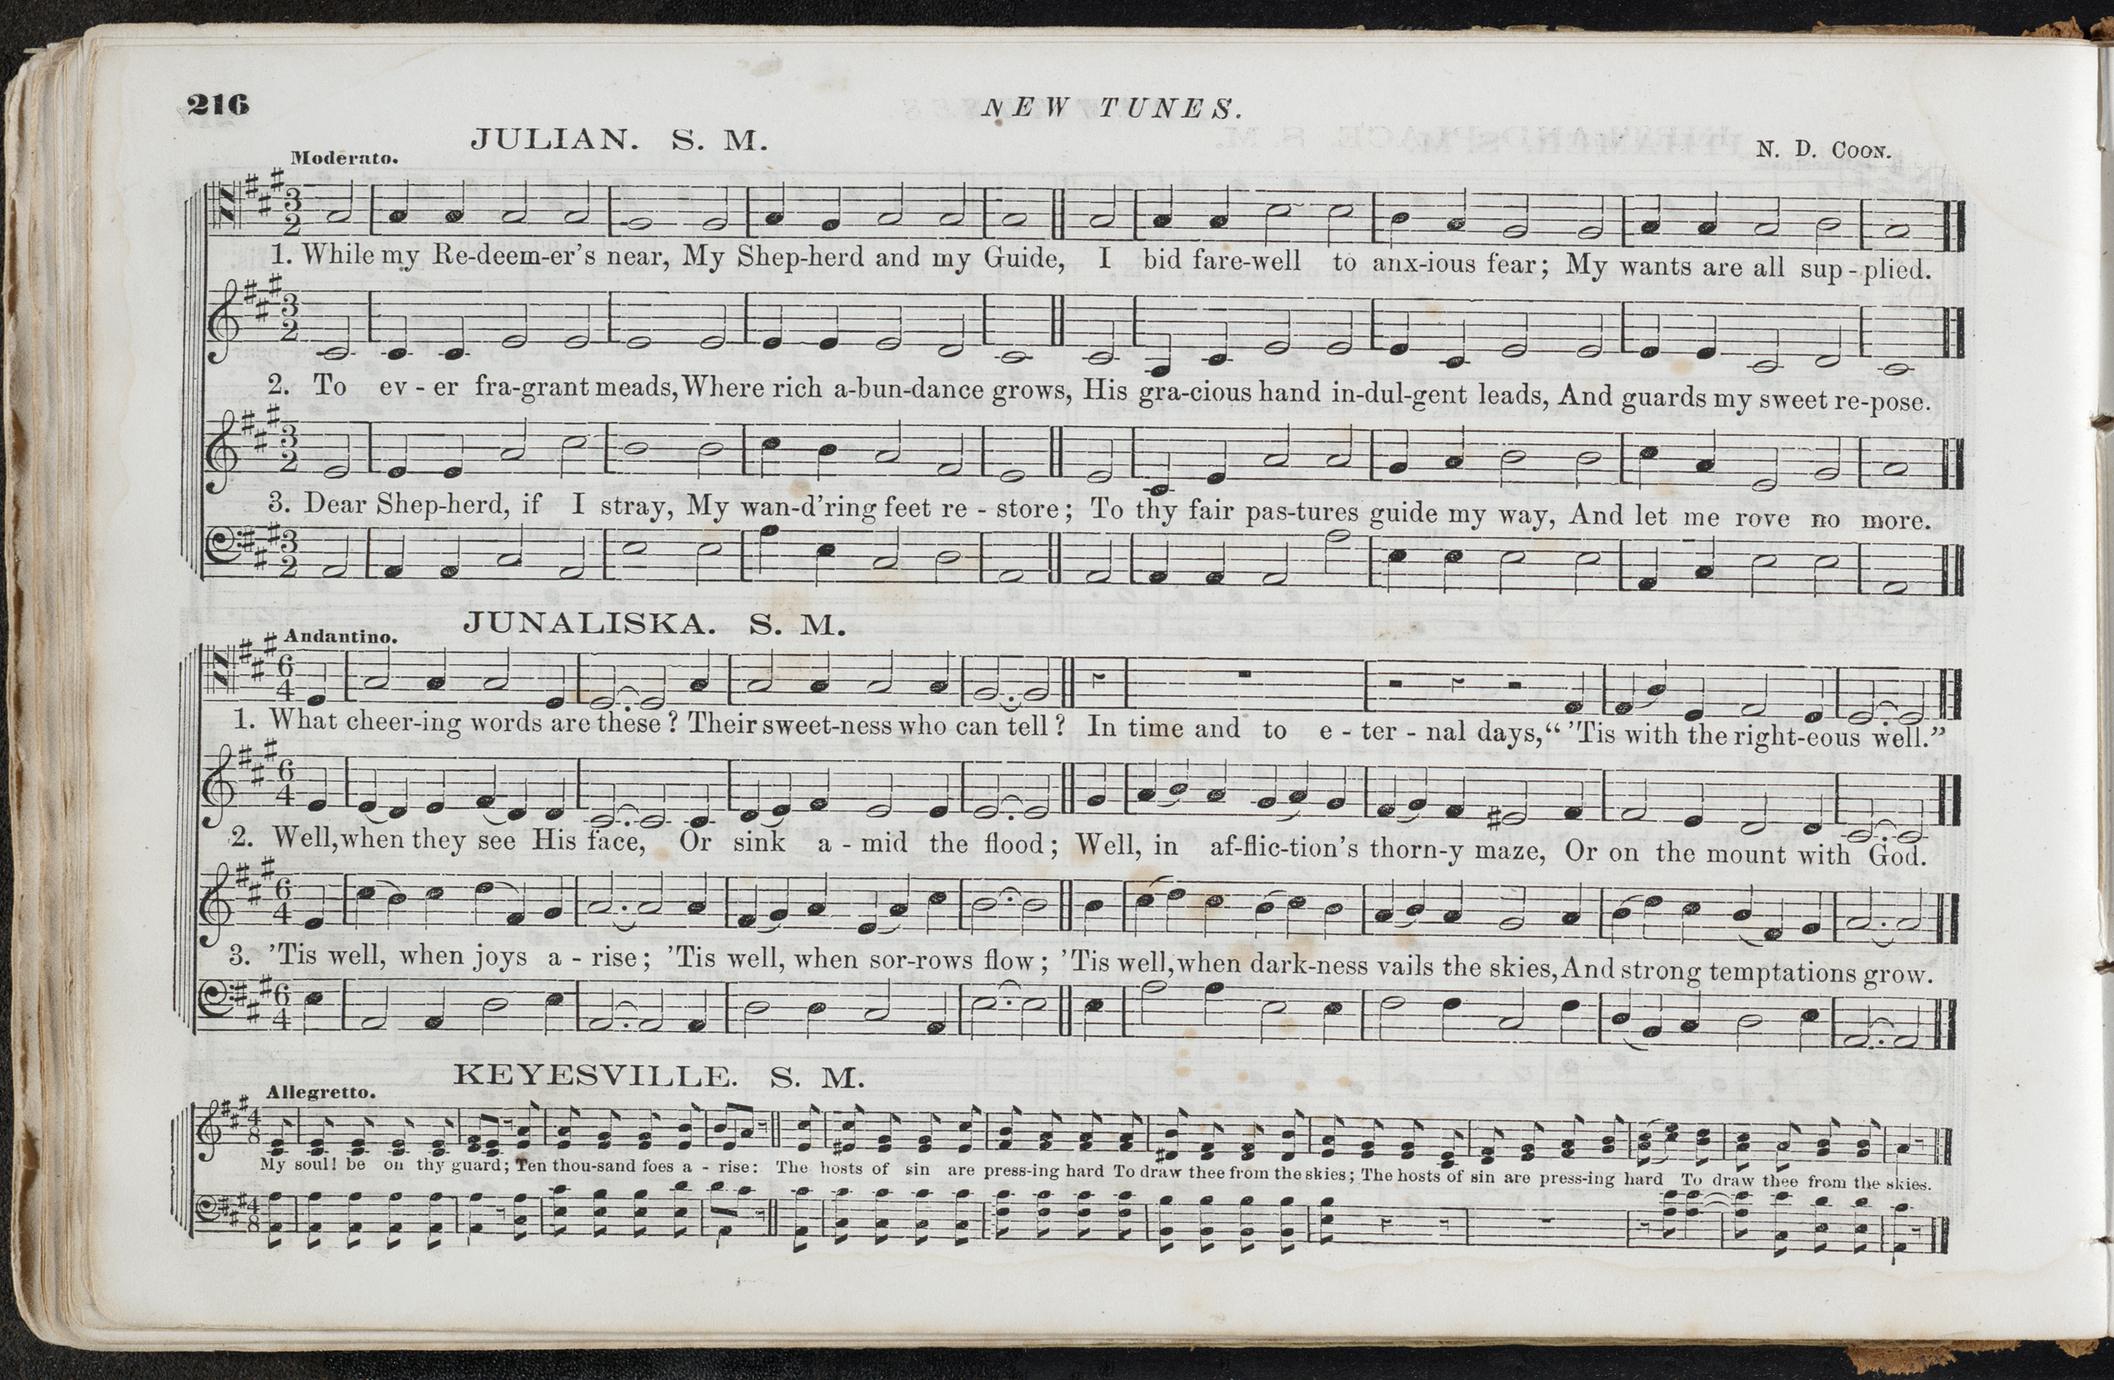 216
NEW TUNES.
JULIAN. S. M.
N. D. COON.
Moderato.
3
2
1. While my Re-deem-er's near, My Shep-herd and my Guide, I bid fare-well to anx-ious fear; My wants are all sup-plied.
3
2
2. To ev-er fra-grant meads, Where rich a-bun-dance grows, His gra-cious hand in-dul-gent leads, And guards my sweet re-pose.
3
2
3. Dear Shep-herd, if I stray, My wan-d'ring feet re-store; To thy fair pas-tures guide my way, And let me rove no more.
3
2
JUNALISKA. S. M.
Andantino.
6
4
1. What cheer-ing words are these? Their sweet-ness who can tell? In time and to e-ter-nal days, “'Tis with the right-eous well.”
6
4
2. Well, when they see His face, Or sink a-mid the flood; Well, in af-flic-tion's thorn-y maze, Or on the mount with God.
6
4
3. 'Tis well, when joys a-rise; 'Tis well, when sor-rows flow; 'Tis well, when dark-ness vails the skies, And strong temptations grow.
6
4
KEYESVILLE. S. M.
Allegretto.
4
8
My soul! be on thy guard; Ten thou-sand foes a-rise: The hosts of sin are press-ing hard To draw thee from the skies; The hosts of sin are press-ing hard To draw thee from the skies.
4
8